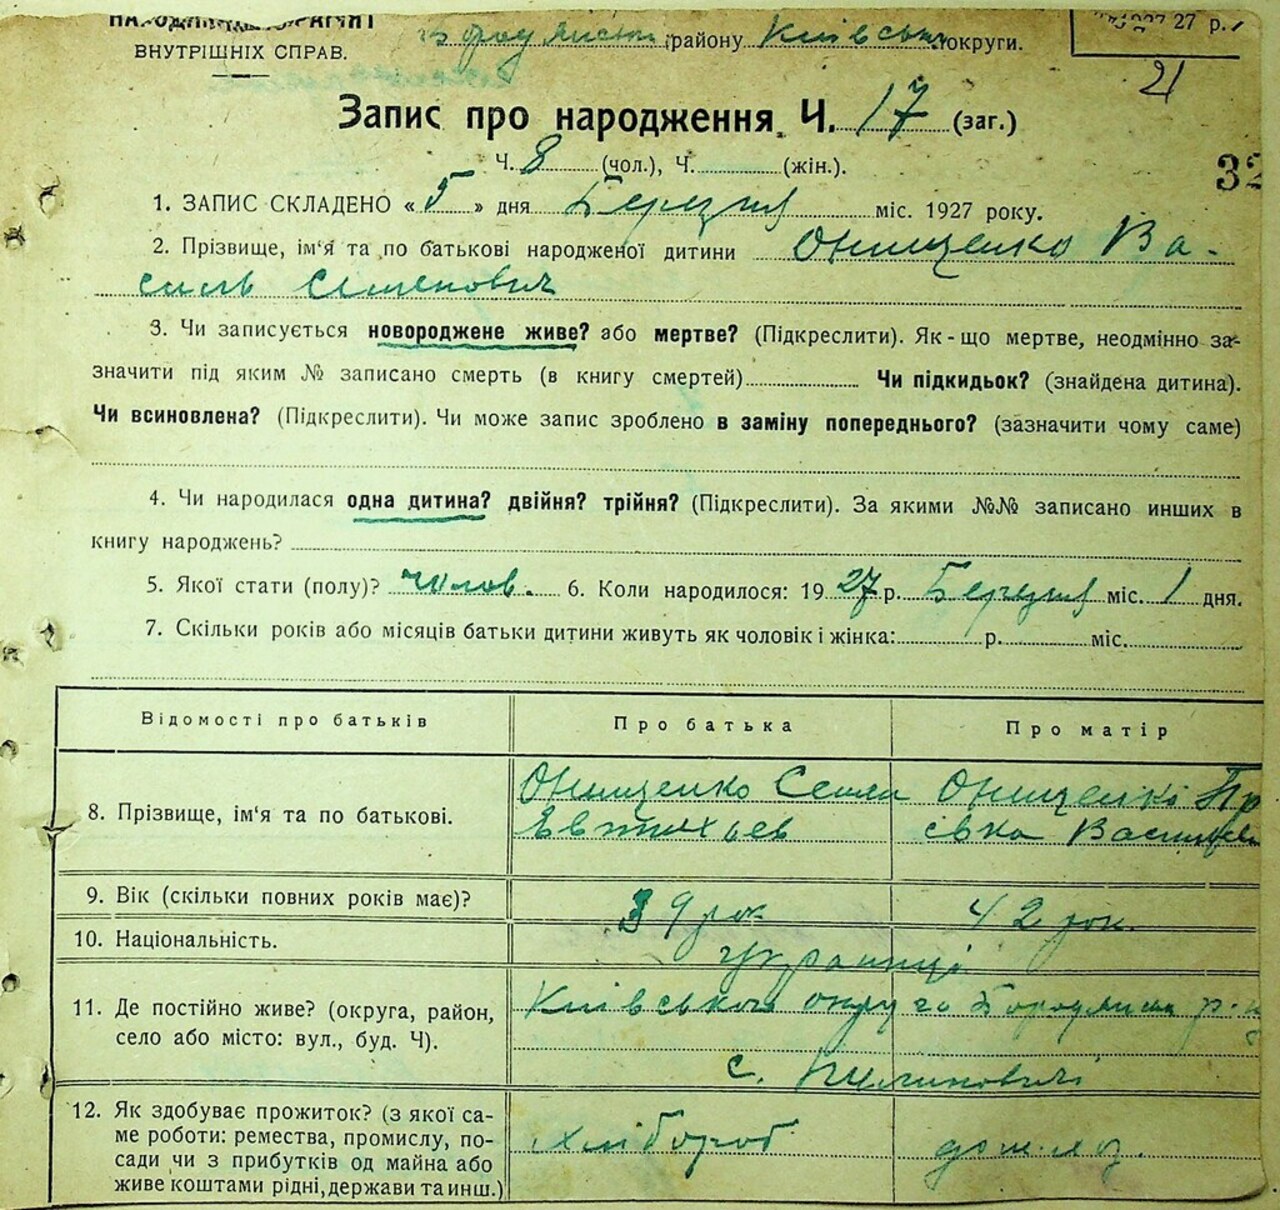 ВНУТРІШНІХ СПРАВ.
району Київської округи.
27 р.
21
Запис про народження Ч. 17 (заг.)
Ч. 8 (чол.), Ч. (жін.).
32
1. ЗАПИС СКЛАДЕНО « 5 » дня Березня міс. 1927 року.
2. Прізвище, ім‘я та по батькові народженої дитини Онищенко Ва-
силь Семенович
3. Чи записується новороджене живе? або мертве? (Підкреслити). Як-що мертве, неодмінно за-
значити під яким № записано смерть (в книгу смертей) Чи підкидьок? (знайдена дитина).
Чи всиновлена? (Підкреслити). Чи може запис зроблено в заміну попереднього? (зазначити чому саме)
4. Чи народилася одна дитина? двійня? трійня? (Підкреслити). За якими №№ записано инших в
книгу народжень?
5. Якої стати (полу)? чолов. 6. Коли народилося: 19 27 р. Березня міс. 1 дня.
7. Скільки років або місяців батьки дитини живуть як чоловік і жінка: р. міс.
Відомості про батьків Про батька Про матір
8. Прізвище, ім‘я та по батькові.
Онищенко Семен
Евтихьев
Онищенко
Василев
9. Вік (скільки повних років має)? 39 рок. 42 рок.
10. Національність. українці
11. Де постійно живе? (округа, район,
село або місто: вул., буд. Ч).
Київського округа Бородянськ р-н
с. Пилиповичі
12. Як здобуває прожиток? (з якої са-
ме роботи: ремества, промислу, по-
сади чи з прибутків од майна або
живе коштами рідні, держави та инш.)
хлібороб
дом. хоз.